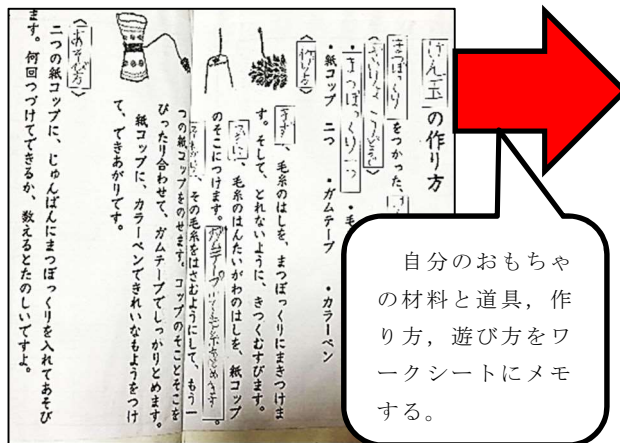 けん玉の作り方
まつぼっくりをつかった、
〈ざいりょうとどうぐ〉
・まつぼっくり 一つ
・紙コップ 二つ ・ガムテープ ・カラーペン
〈作り方〉
まず、毛糸のはしを、まつぼっくりにまきつけま
す。そして、とれないように、きつくむすびます。
つぎに、毛糸のはんたいがわのはしを、紙コップ
のそこにつけます。ガムテープ
その毛糸をはさむようにして、もう一
つの紙コップをのせます。コップのそことそこを
ぴったり合わせて、ガムテープでしっかりとめます。
紙コップに、カラーペンできれいなもようをつけ
て、できあがりです。
〈あそび方〉
二つの紙コップに、じゅんばんにまつぼっくりを入れてあそび
ます。何回つづけてできるか、数えるとたのしいですよ。
自分のおもちゃ
の材料と道具,作
り方,遊び方をワ
ークシートにメモ
する。